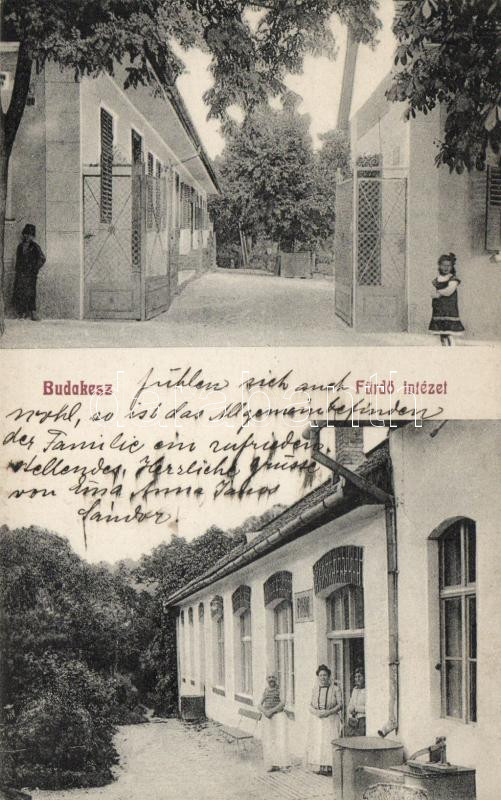 Budakesz
Fürdő intézet
fühlen sich auch
wohl, so ist das Allgemeinbefinden
der Familie ein zufrieden-
stellendes, Herzliche Grüsse
von Anna János
Sándor